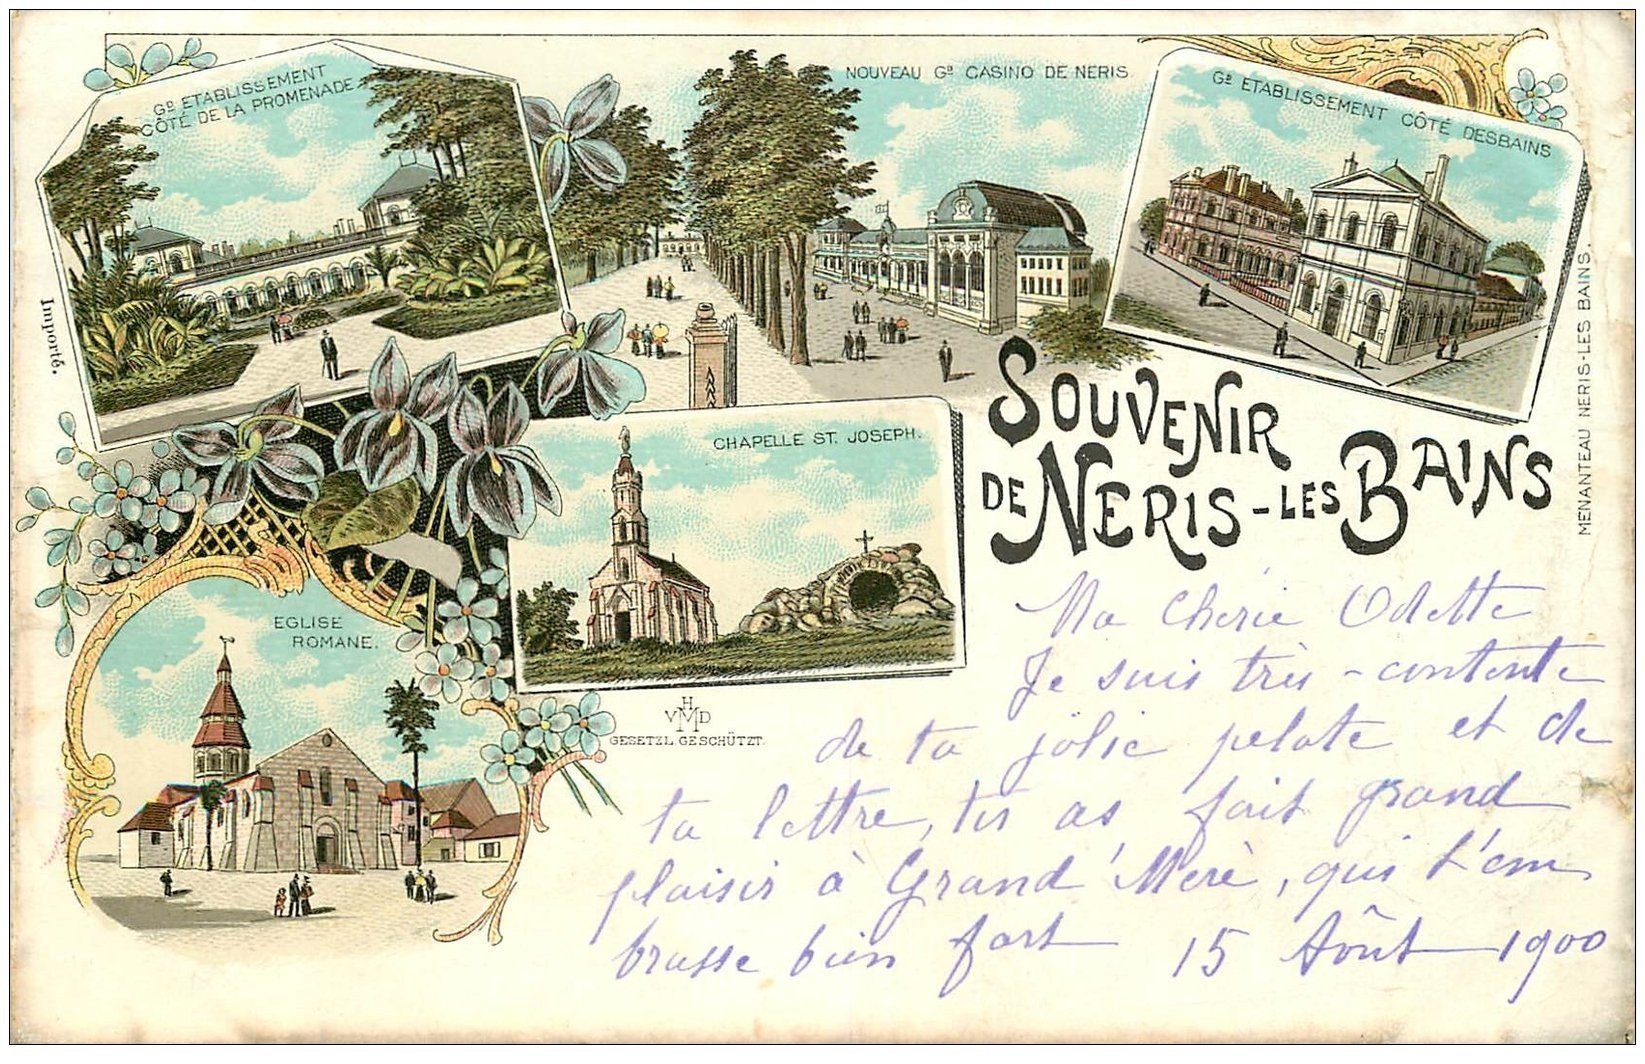 Gᴰ ETABLISSEMENT
CÔTÉ DE LA PROMENADE
NOUVEAU Gᴰ CASINO DE NERIS.
Gᴰ ETABLISSEMENT CÔTÉ DESBAINS
Importé.
MENANTEAU NERIS-LES BAINS.
CHAPELLE ST. JOSEPH.
SOUVENIR
DE NERIS-LES BAINS
EGLISE
ROMANE.
H
VMD
GESETZL. GESCHÜTZT.
Ma Chérie Odette
Je suis très-contente
de ta jolie pelote et de
ta lettre, tu as fait grand
plaisir à Grand'Merè, qui t'em
brasse bien fort 15 Août 1900